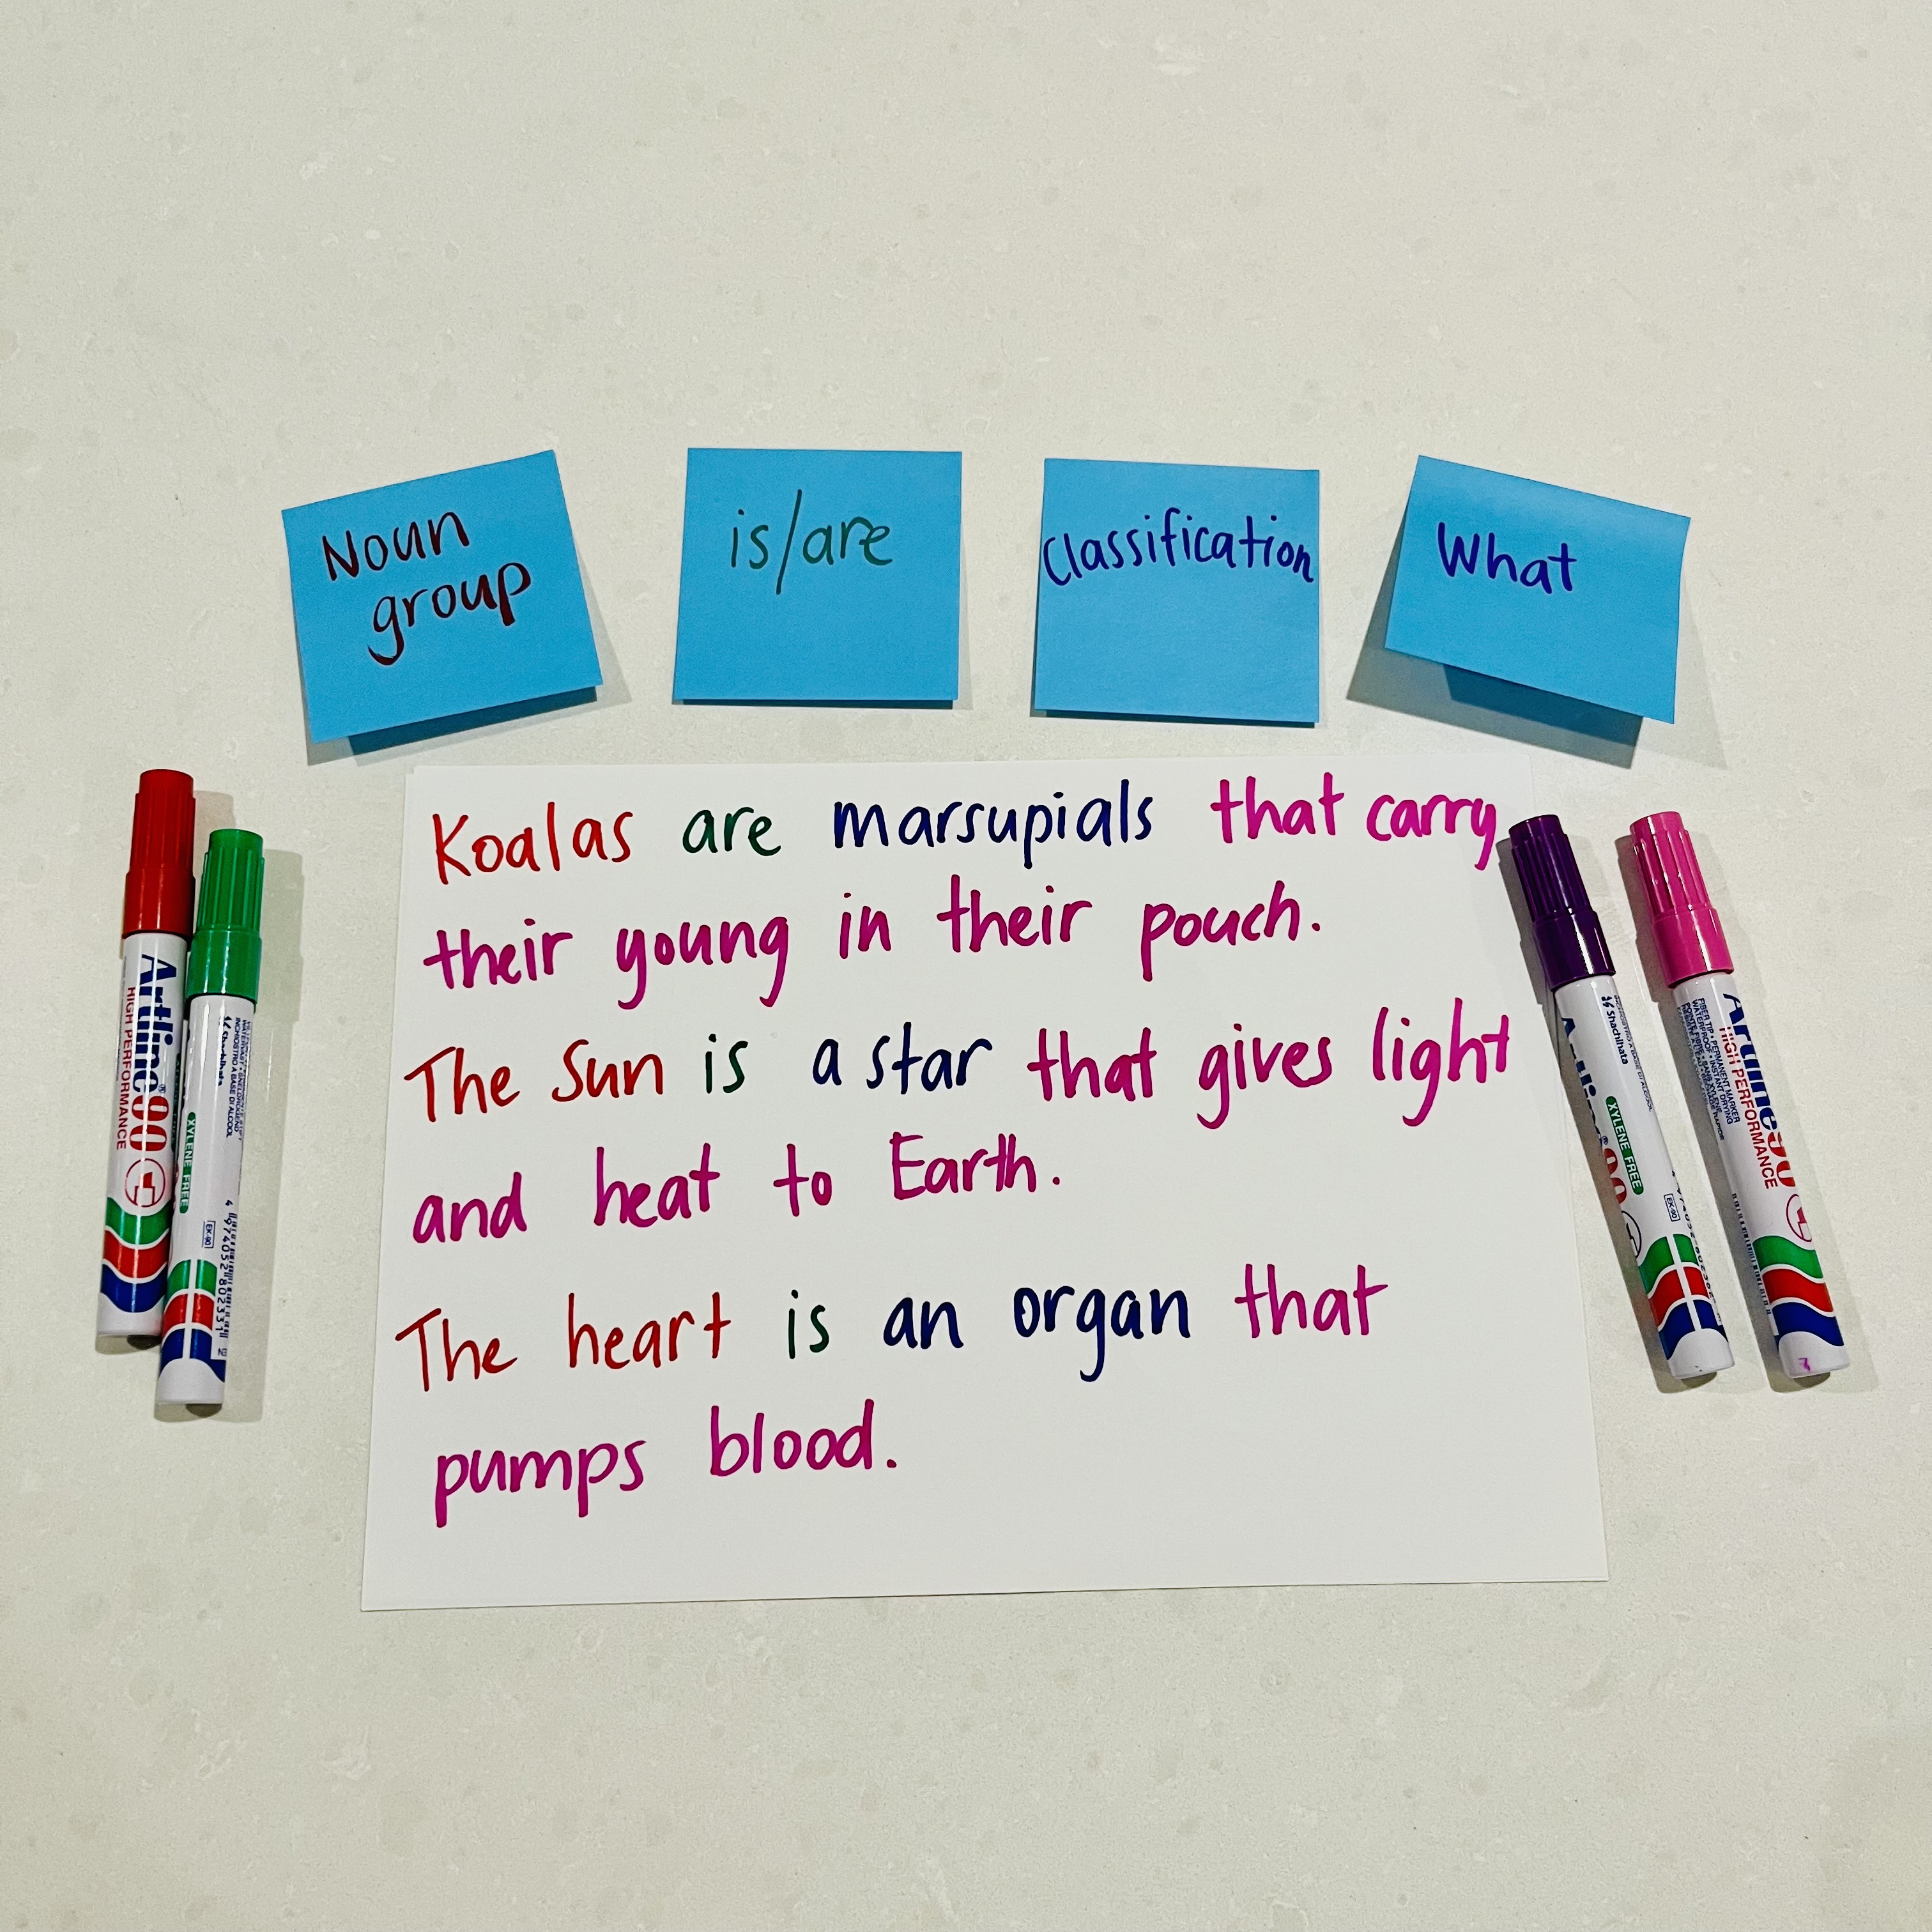 Noun
group
is/are
Classification
What
Koalas are marsupials that carry
their young in their pouch.
The Sun is a star that gives light
and heat to Earth.
The heart is an organ that
pumps blood.
Artline 90
HIGH PERFORMANCE
Shachihata
XYLENE FREE
EK-90
4 974052 802331
Shachihata
XYLENE FREE
EK-90
Artline 90
HIGH PERFORMANCE